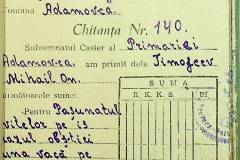 Comuna Adamovca.
Chitanța Nr. 140.
Subsemnatul Casier al Primariei
Adamovca am primit dela Timofeev
Mihail On.
următoarele sume:
SUMA
R. K. K. S.
Pentru Pasunatul
vitelor pe is
lazul obștiei
una vacă pe